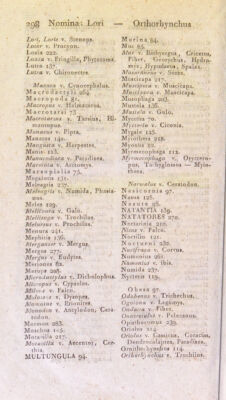 298 Nomina: Lori — Orthorhynchus
Lori, Loris v. Stenops.
Lotor v. Procyon.
Loxia 222.
Loxia v. Fringilla, Phytotoma.
Lutra 157.
Lutra v. Chironectes.
Macaca v. Cynocephalus.
Macrodactyli 264.
Macropoda 81.
Macropus v. Halmaturus.
Macrotarsi 73
Macrotarsus v. Tarsius,
Manacus v. Pipra.
Manatus 140.
Mangusta v. Herpestes.
Manis 118.
Manucodiata v. Paradisea.
Marmota v. Arctomys.
Marsupialia 75.
Megaderma 131.
Meleagris 237.
Meleagris v. Numida,
Meles 129.
Mellisuga v. Galo.
Mellisuga v. Trochilus.
Melursus v. Prochilus.
Menura 241.
Mephitis 156.
Merganser v. Mergus.
Mergus 272.
Mergus v. Eudytes.
Merops 208.
Microdactylus v. Dicholophus.
Micropus v. Cypselus.
Milvus v. Falco.
Molossus v. Dysopes.
Momotus v. Prionites.
Monodon v. Antylodon,
Mormon 283.
Moschus 105.
Motacilla 217.
Motacilla v. Accentor,
MULTUNGULA 94.
Murina 94.
Mus 95.
Mus v. Bathyergus, Cricetus,
Fiber, Georychus,
Muscardinus v.
Muscicapa 217.
Muscicapa v. Muscicapa.
Musophaga 203.
Mustela 126.
Mustela v. Gulo.
Mycetes 70.
Mycteria v. Ciconia.
Mygale 125.
Myothera 218.
Myoxus 92.
Myrmecophaga 112.
Myrmecophaga v.
Narwalus v. Ceratodon.
Nasicornia 97.
Nasua 128.
Nasuta 98.
NATANTIA 139.
NATATORES 270.
Necturina 222.
Nisus v. Falco.
Noctilio 121.
Nocturni 232.
Nucifraga v. Corvus.
Numenius 261.
Numenius v. Ibis.
Numida 237.
Nycteris 119.
Obesa 97.
Odobenus v. Trichechus.
Ogotona v. Lagomys.
Ondatra v. Fiber.
Onocrotalus v. Pelecanus.
Opisthocomus 239.
Oriolus 214
Oriolus v. Cassicus, Coracias,
Ornithorhynchus 114.
Orthorhynchus v. Trochilus.